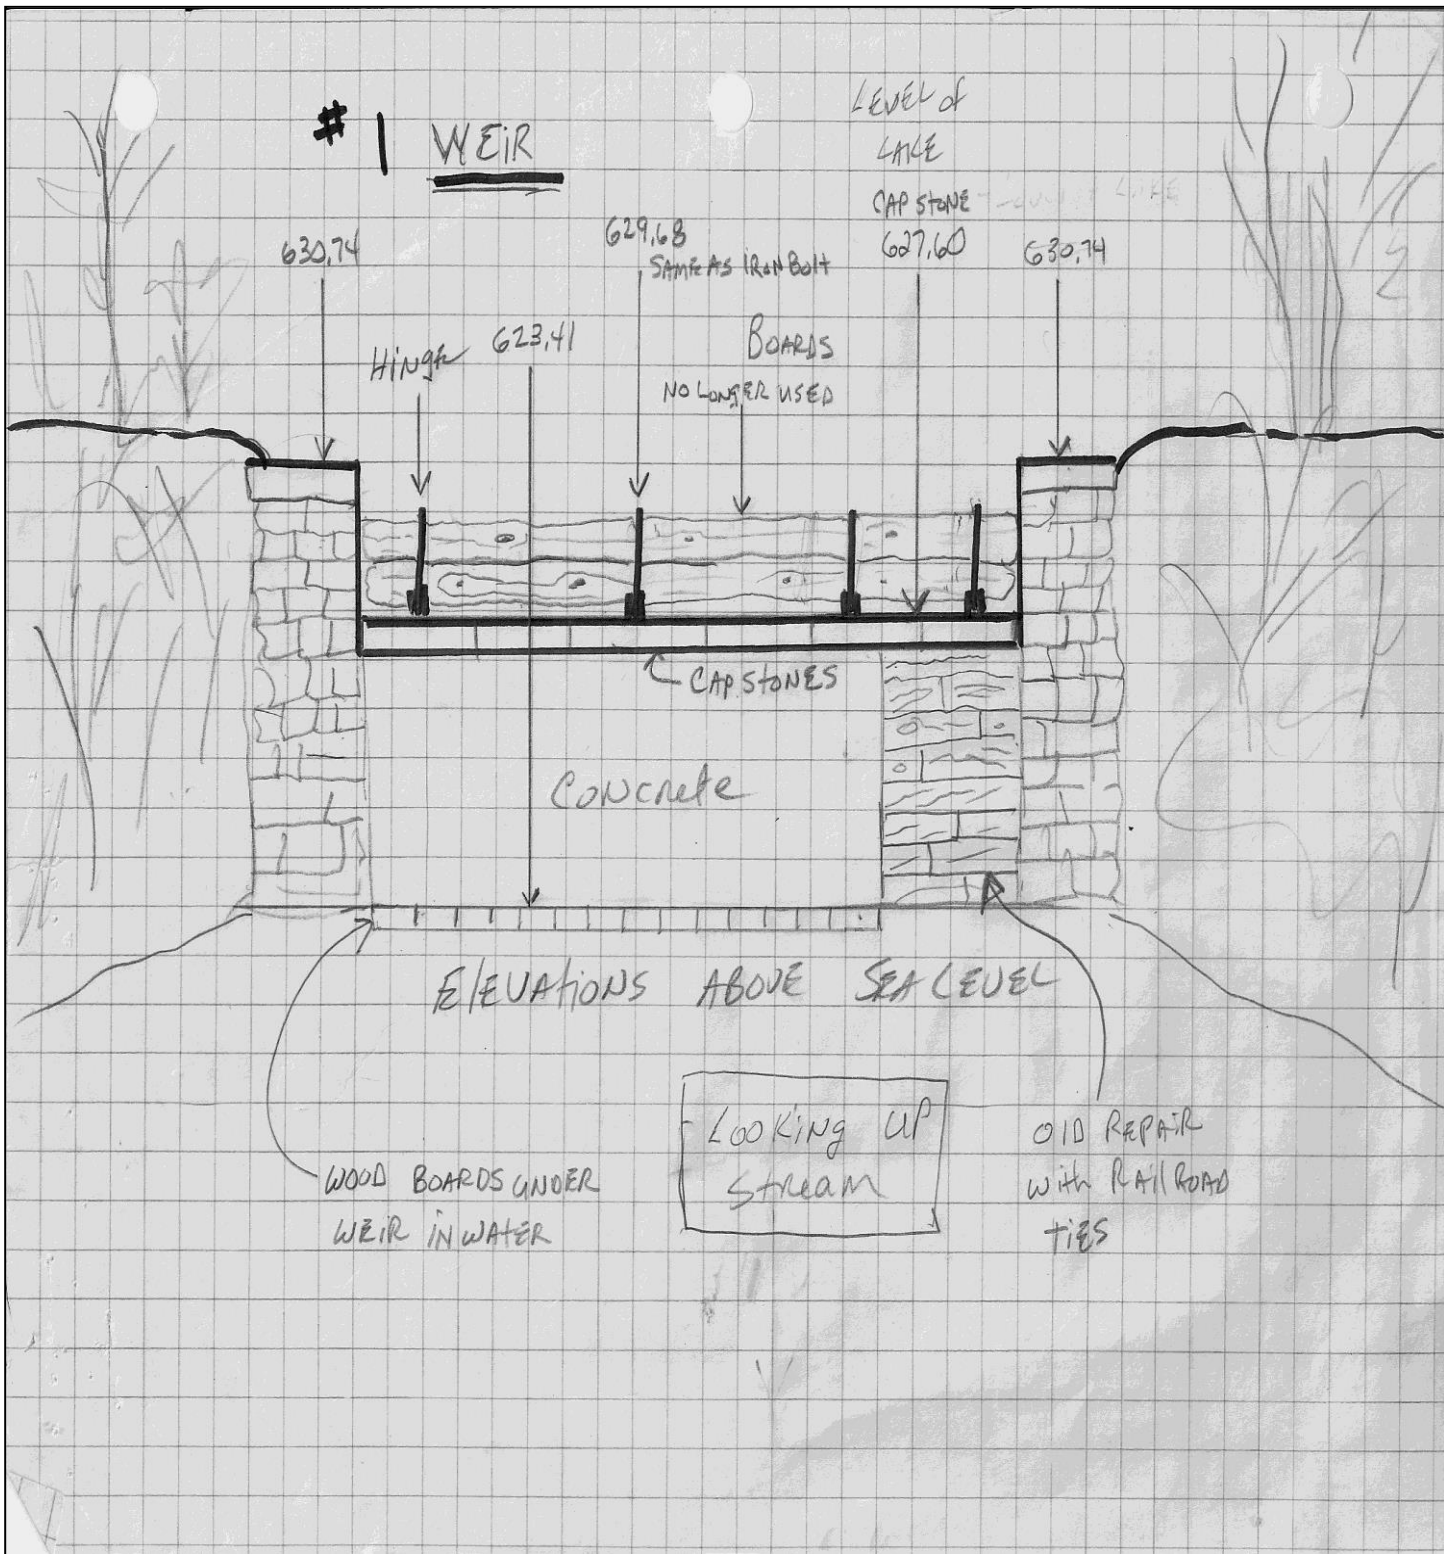 #1 WEiR
LEVEL of
LAKE
CAP StONE
627.60
630.74
629.68
SAME AS IRON BOlt
630.74
HiNgE
623.41
BOARDS
NO LONGER USED
CAP StONES
CONCRete
ElEVAtiONS ABOVE SEA LEVEL
LOOKiNg UP
StReam
WOOD BOARDS UNDER
WEiR iN WAtER
OlD REPAiR
With RAil ROAD
tiES